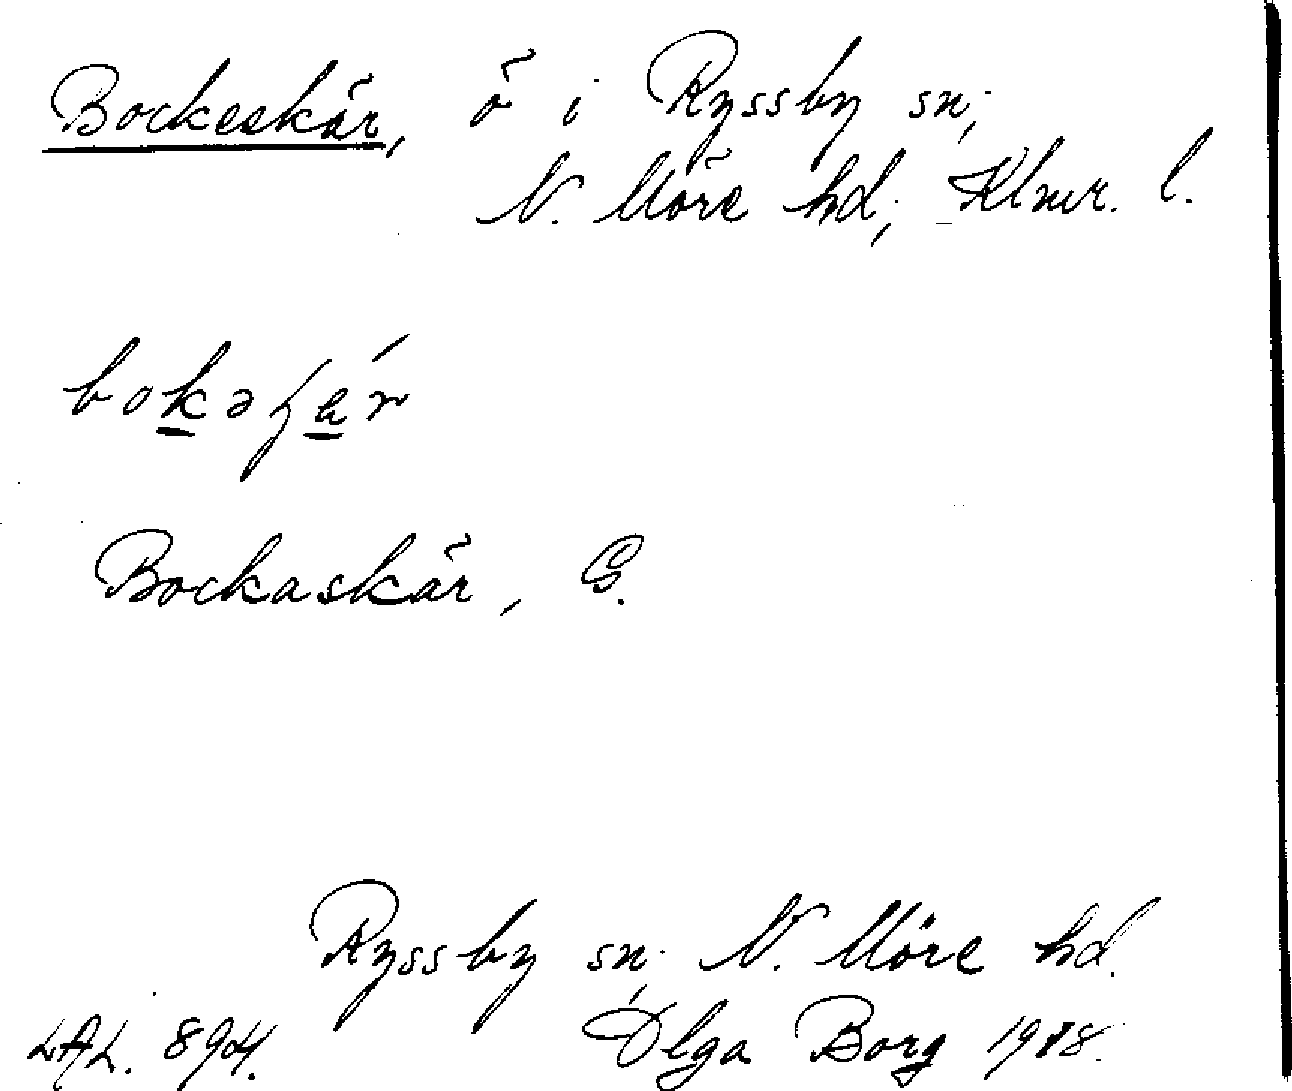 Bockeskär, ö i Ryssby sn,
N. Möre hd, Klmr. l.
Bockaskär, G.
Ryssby sn, N. Möre hd.
LAL. 894. Olga Borg 1918.